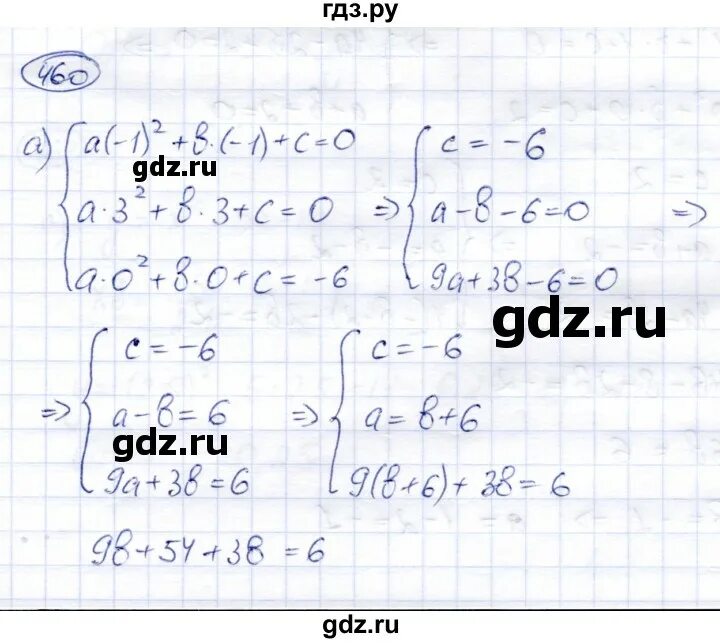 гдз.ру
460
а) { a(-1)² + b·(-1) + c = 0
a·3² + b·3 + c = 0
a·0² + b·0 + c = -6
=> { c = -6
a - b - 6 = 0
9a + 3b - 6 = 0
=>
gdz.ru
gdz.ru
=> { c = -6
a - b = 6
9a + 3b = 6
=> { c = -6
a = b + 6
9(b + 6) + 3b = 6
gdz.ru
9b + 54 + 3b = 6
gdz.ru